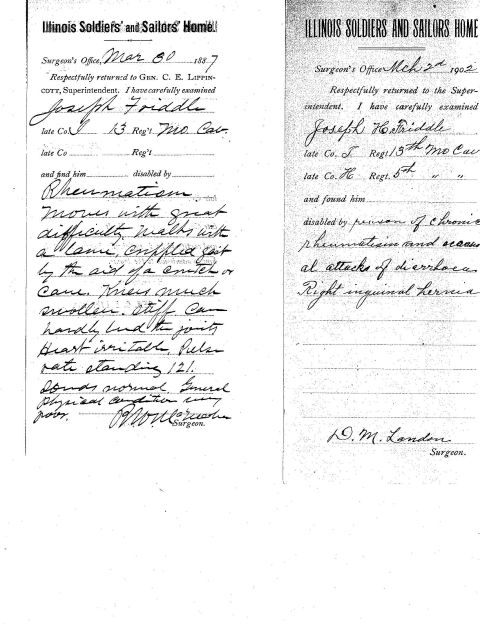 Illinois Soldiers' and Sailors' Home.
Surgeon's Office, Mar 30 1887
Respectfully returned to GEN. C. E. LIPPIN-
COTT, Superintendent. I have carefully examined
Joseph Friddle
late Co. I 13 Reg't Mo. Cav.
late Co Reg't
and find him disabled by
Rheumatism
Moves with great
difficulty, walks with
a lame, crippled gait
by the aid of a crutch or
cane. Knees much
swollen. Stiff can
hardly bend the joints
Heart irritable, Pulse
rate standing 121.
Sounds normal. General
Physical condition very
poor.
Surgeon.
ILLINOIS SOLDIERS AND SAILORS HOME
Surgeon's Office Mch 2nd 1902
Respectfully returned to the Super-
intendent. I have carefully examined
Joseph H. Friddle
late Co. I Regt. 13th Mo Cav
late Co. H Regt. 5th " "
and found him
disabled by reason of chronic
rheumatism and occasion
al attacks of diarrhoea
Right inguinal hernia
D. M. Landon
Surgeon.